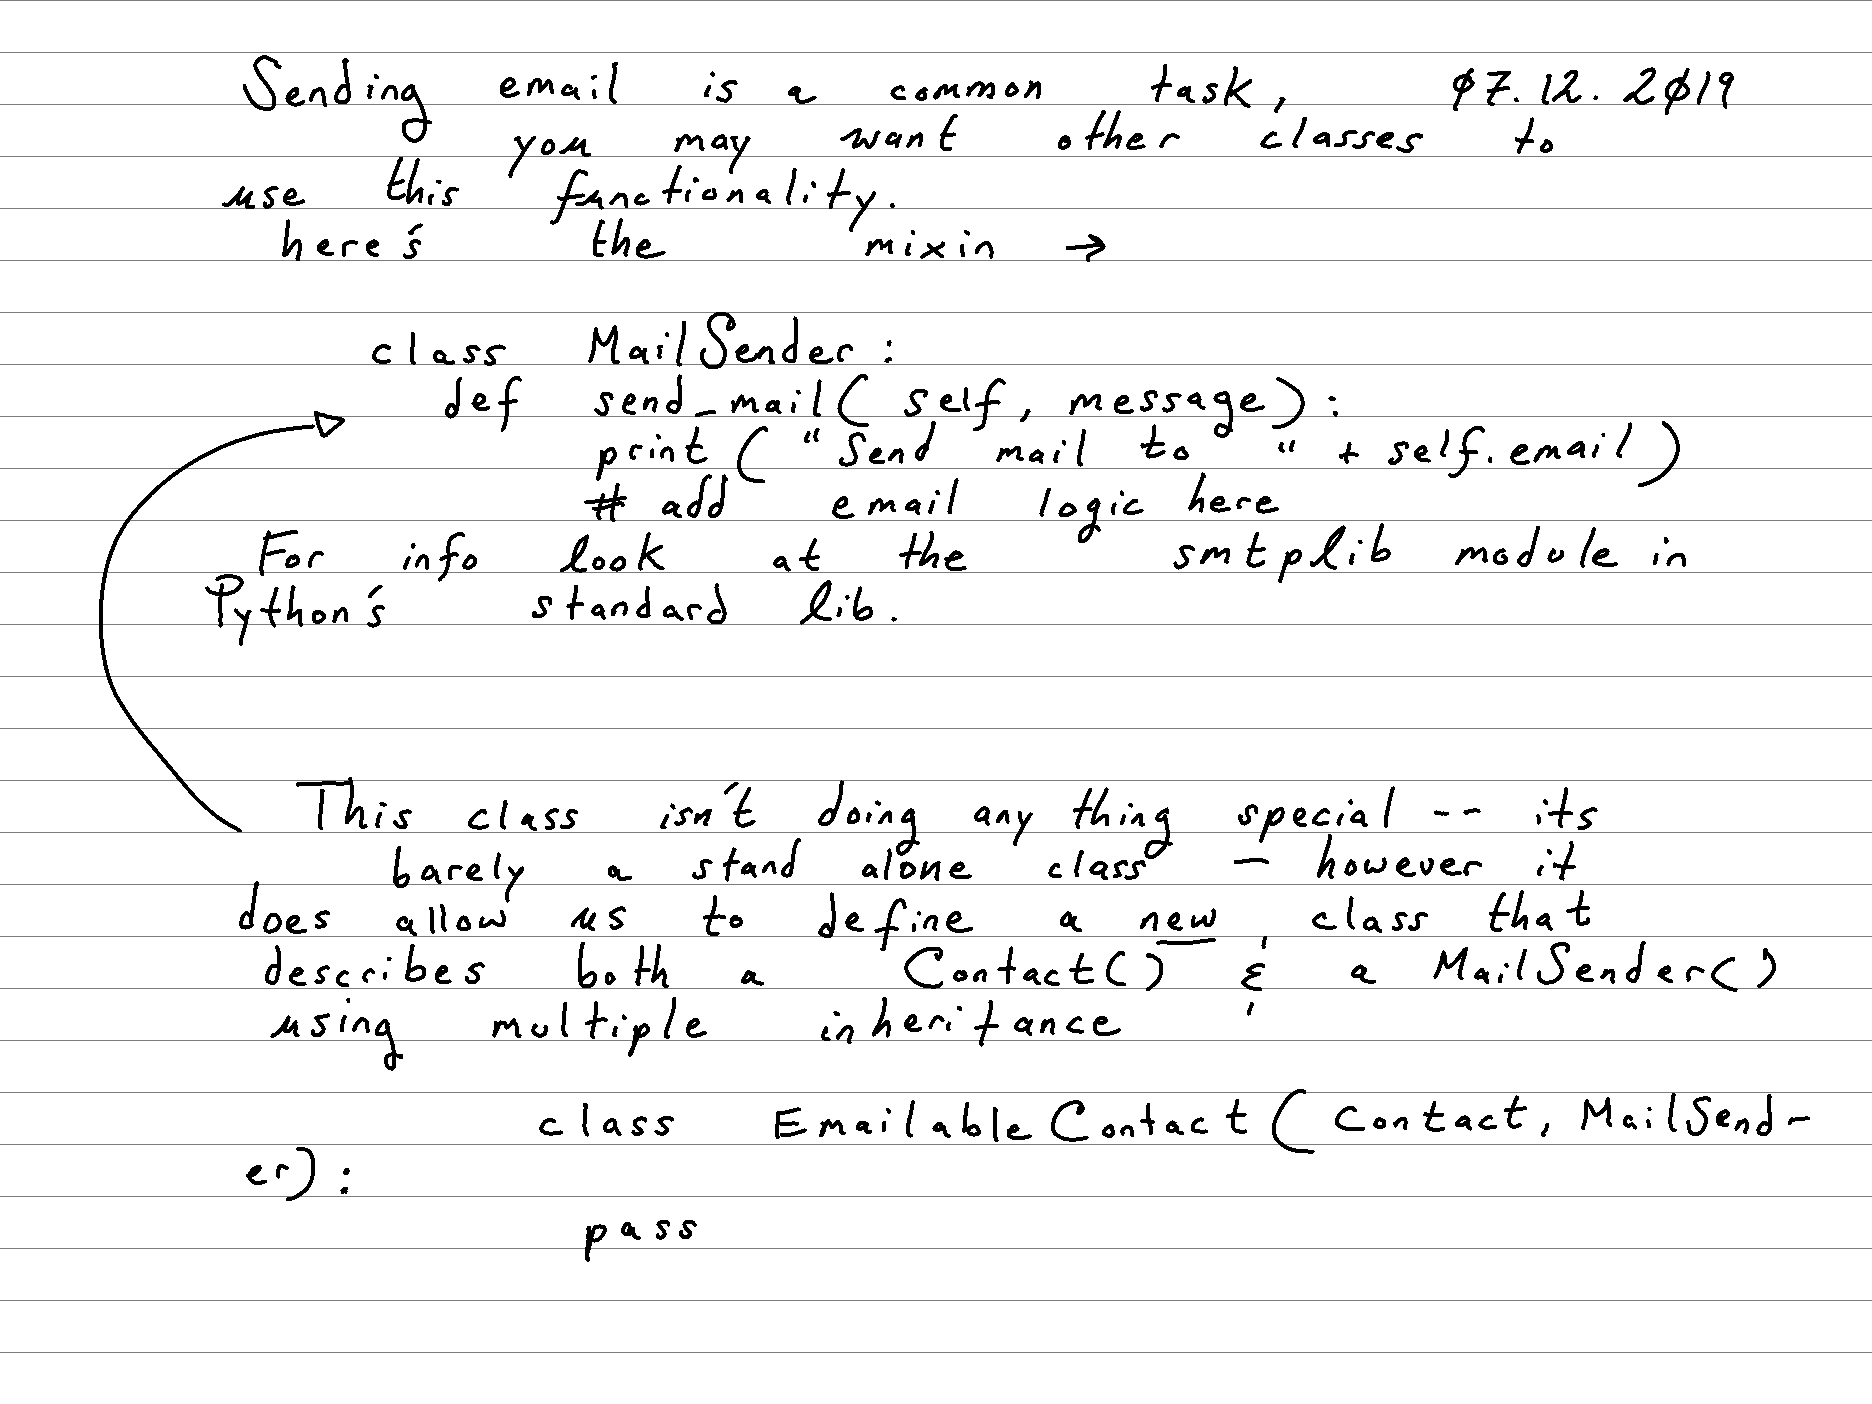 Sending email is a common task, 07.12.2019
you may want other classes to
use this functionality.
here's the mixin →
class MailSender:
def send_mail( self, message):
print ( "Send mail to " + self.email)
# add email logic here
For info look at the smtplib module in
Python's standard lib.
This class isn't doing any thing special -- its
barely a stand alone class — however it
does allow us to define a new class that
describes both a Contact() & a MailSender()
using multiple inheritance
class EmailableContact( Contact, MailSend-
er):
pass